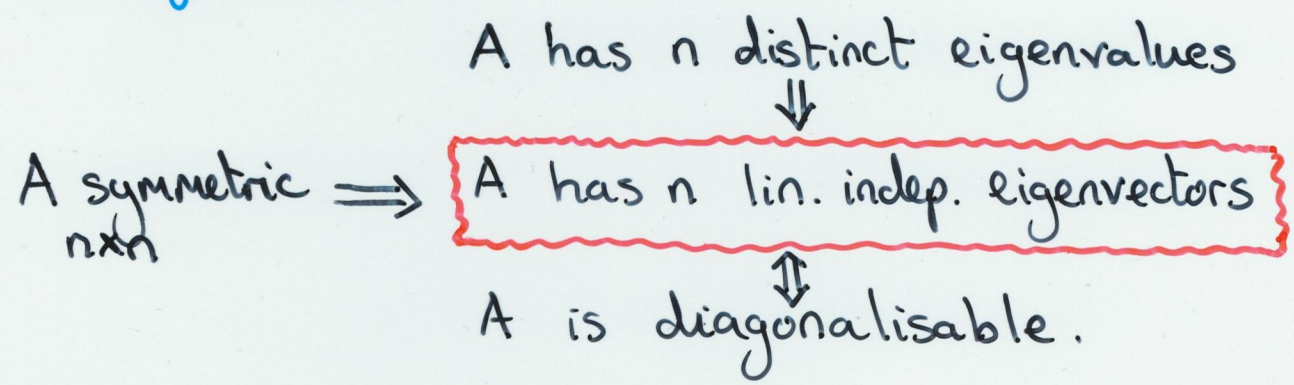 A has n distinct eigenvalues
⇓
A symmetric ⟹ A has n lin. indep. eigenvectors
n×n
⇕
A is diagonalisable.